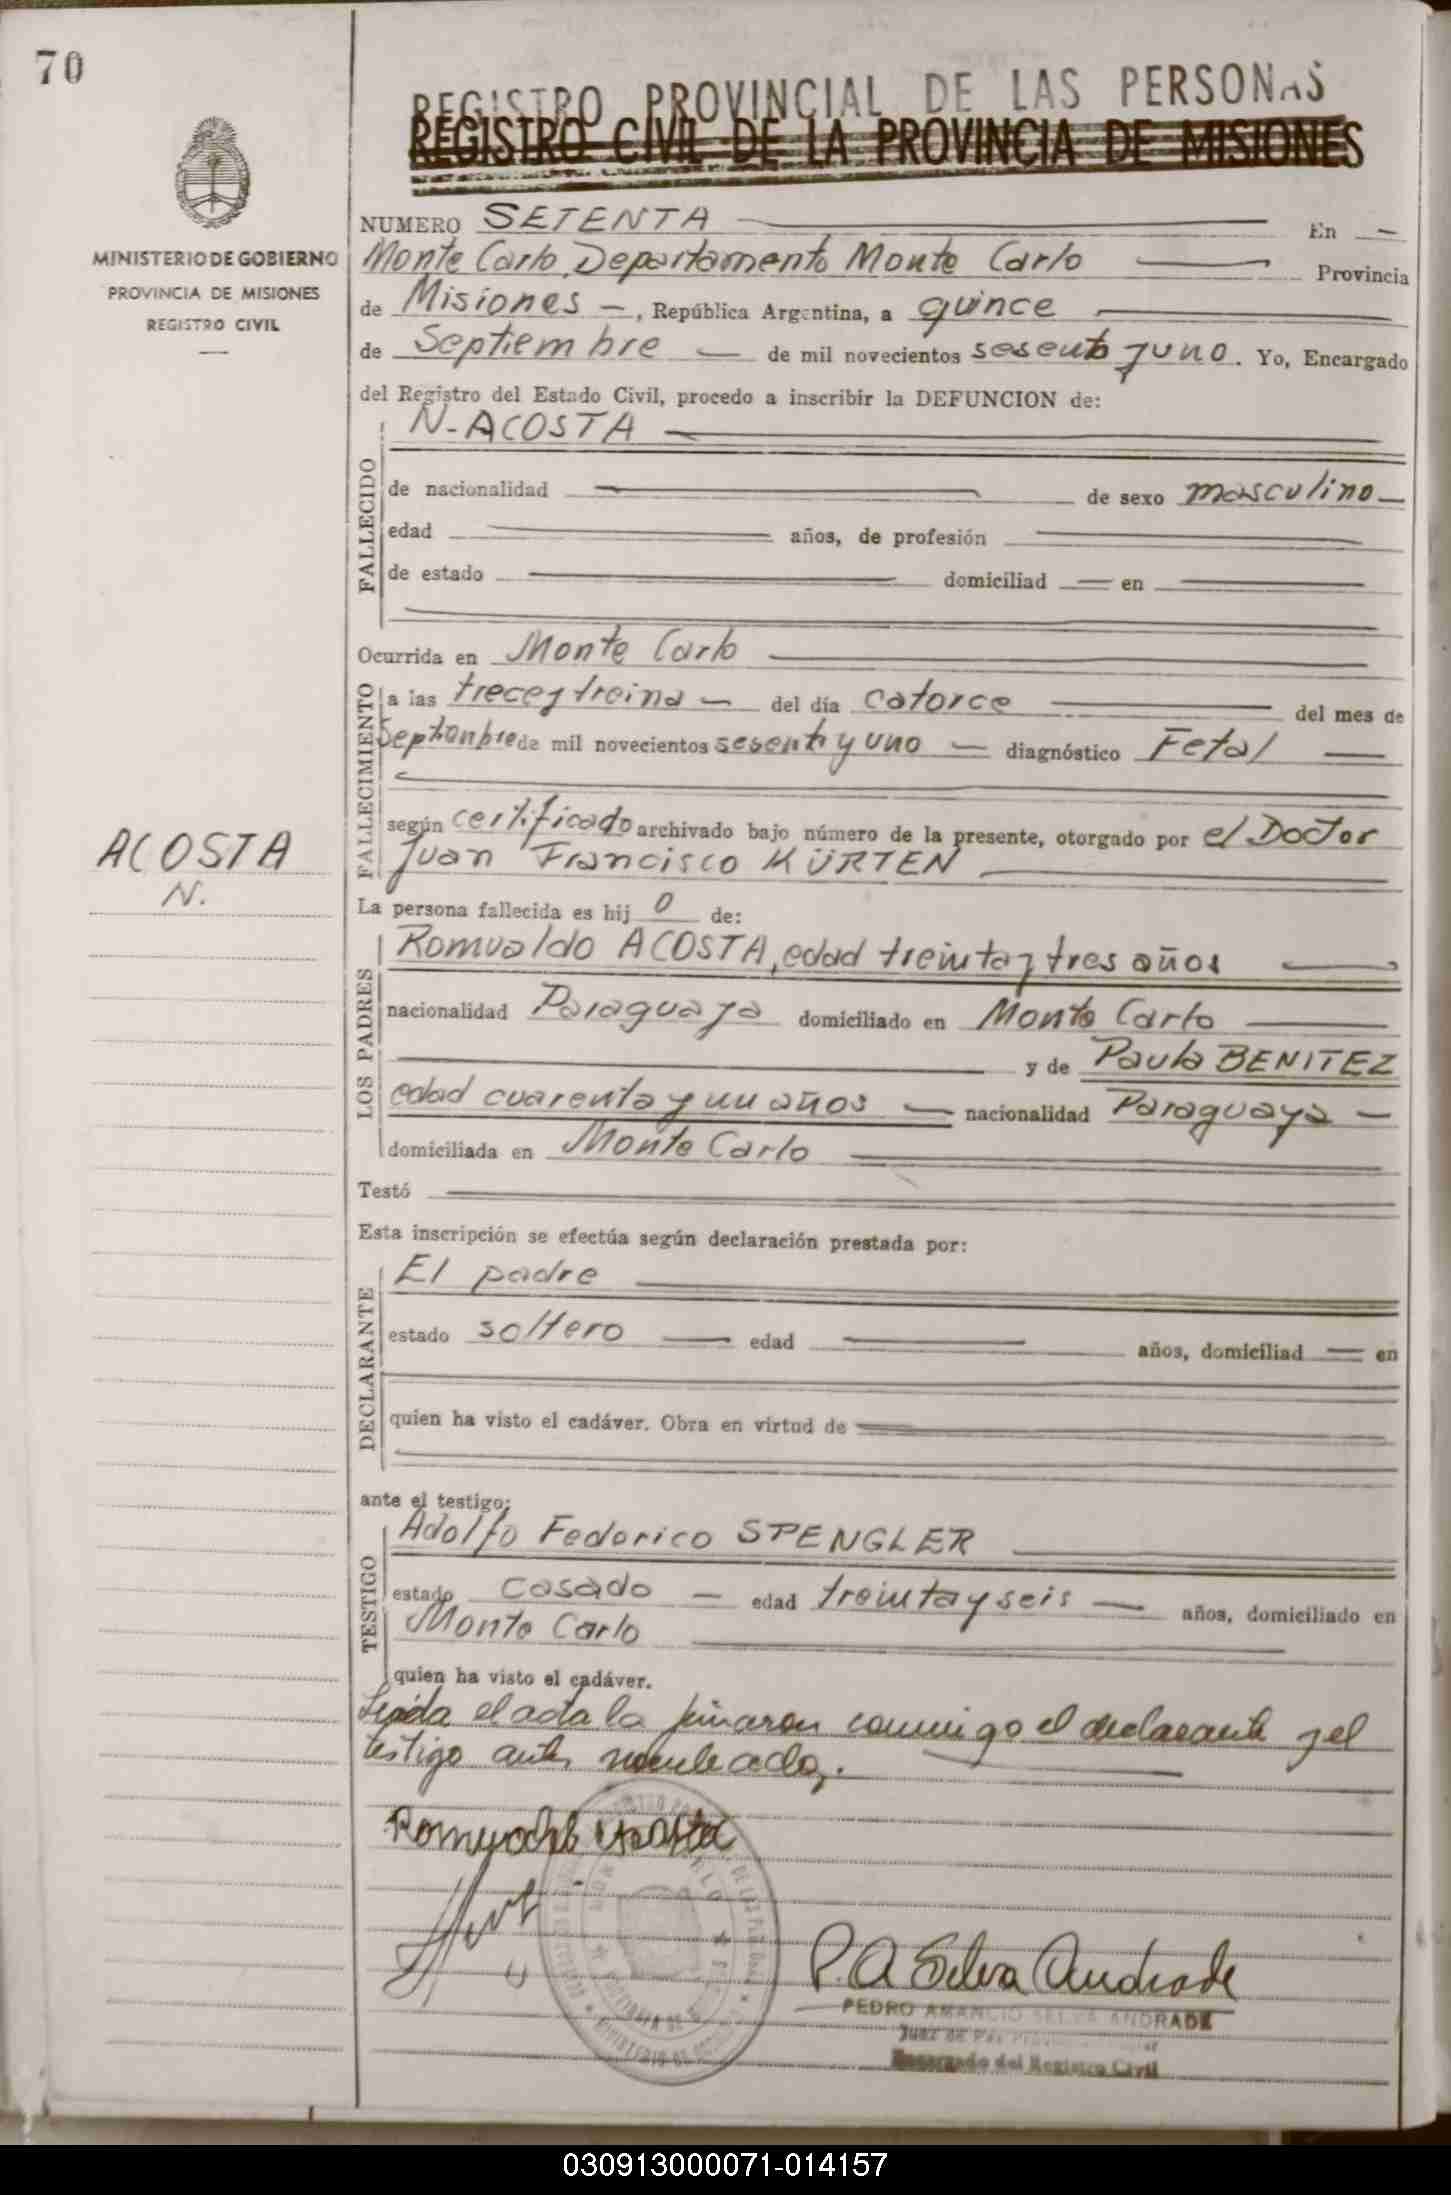 70
REGISTRO PROVINCIAL DE LAS PERSONAS
REGISTRO CIVIL DE LA PROVINCIA DE MISIONES
MINISTERIO DE GOBIERNO
PROVINCIA DE MISIONES
REGISTRO CIVIL
NUMERO SETENTA En
Monte Carlo, Departamento Monte Carlo Provincia
de Misiones, República Argentina, a quince
de Septiembre de mil novecientos sesenta y uno. Yo, Encargado
del Registro del Estado Civil, procedo a inscribir la DEFUNCION de:
N-ACOSTA
FALLECIDO
de nacionalidad de sexo masculino
edad años, de profesión
de estado domiciliad en
Ocurrida en Monte Carlo
FALLECIMIENTO
a las trece y treina del día catorce del mes de
Septienbre de mil novecientos sesenta y uno diagnóstico Fetal
según certificado archivado bajo número de la presente, otorgado por el Doctor
Juan Francisco KÜRTEN
ACOSTA
N.
La persona fallecida es hij o de:
LOS PADRES
Romualdo ACOSTA, edad treinta y tres años
nacionalidad Paraguaya domiciliado en Monte Carlo
y de Paula BENITEZ
edad cuarenta y un años nacionalidad Paraguaya
domiciliada en Monte Carlo
Testó
Esta inscripción se efectúa según declaración prestada por:
DECLARANTE
El padre
estado soltero edad años, domiciliad en
quien ha visto el cadáver. Obra en virtud de
ante el testigo:
TESTIGO
Adolfo Federico SPENGLER
estado casado edad treinta y seis años, domiciliado en
Monte Carlo
quien ha visto el cadáver.
Leída el acta la firmaron conmigo el declarante y el
testigo antes nombrado.
Romualdo Acosta
P. A Silva Andrade
PEDRO AMANCIO SILVA ANDRADE
Juez de Paz
Encargado del Registro Civil
030913000071-014157